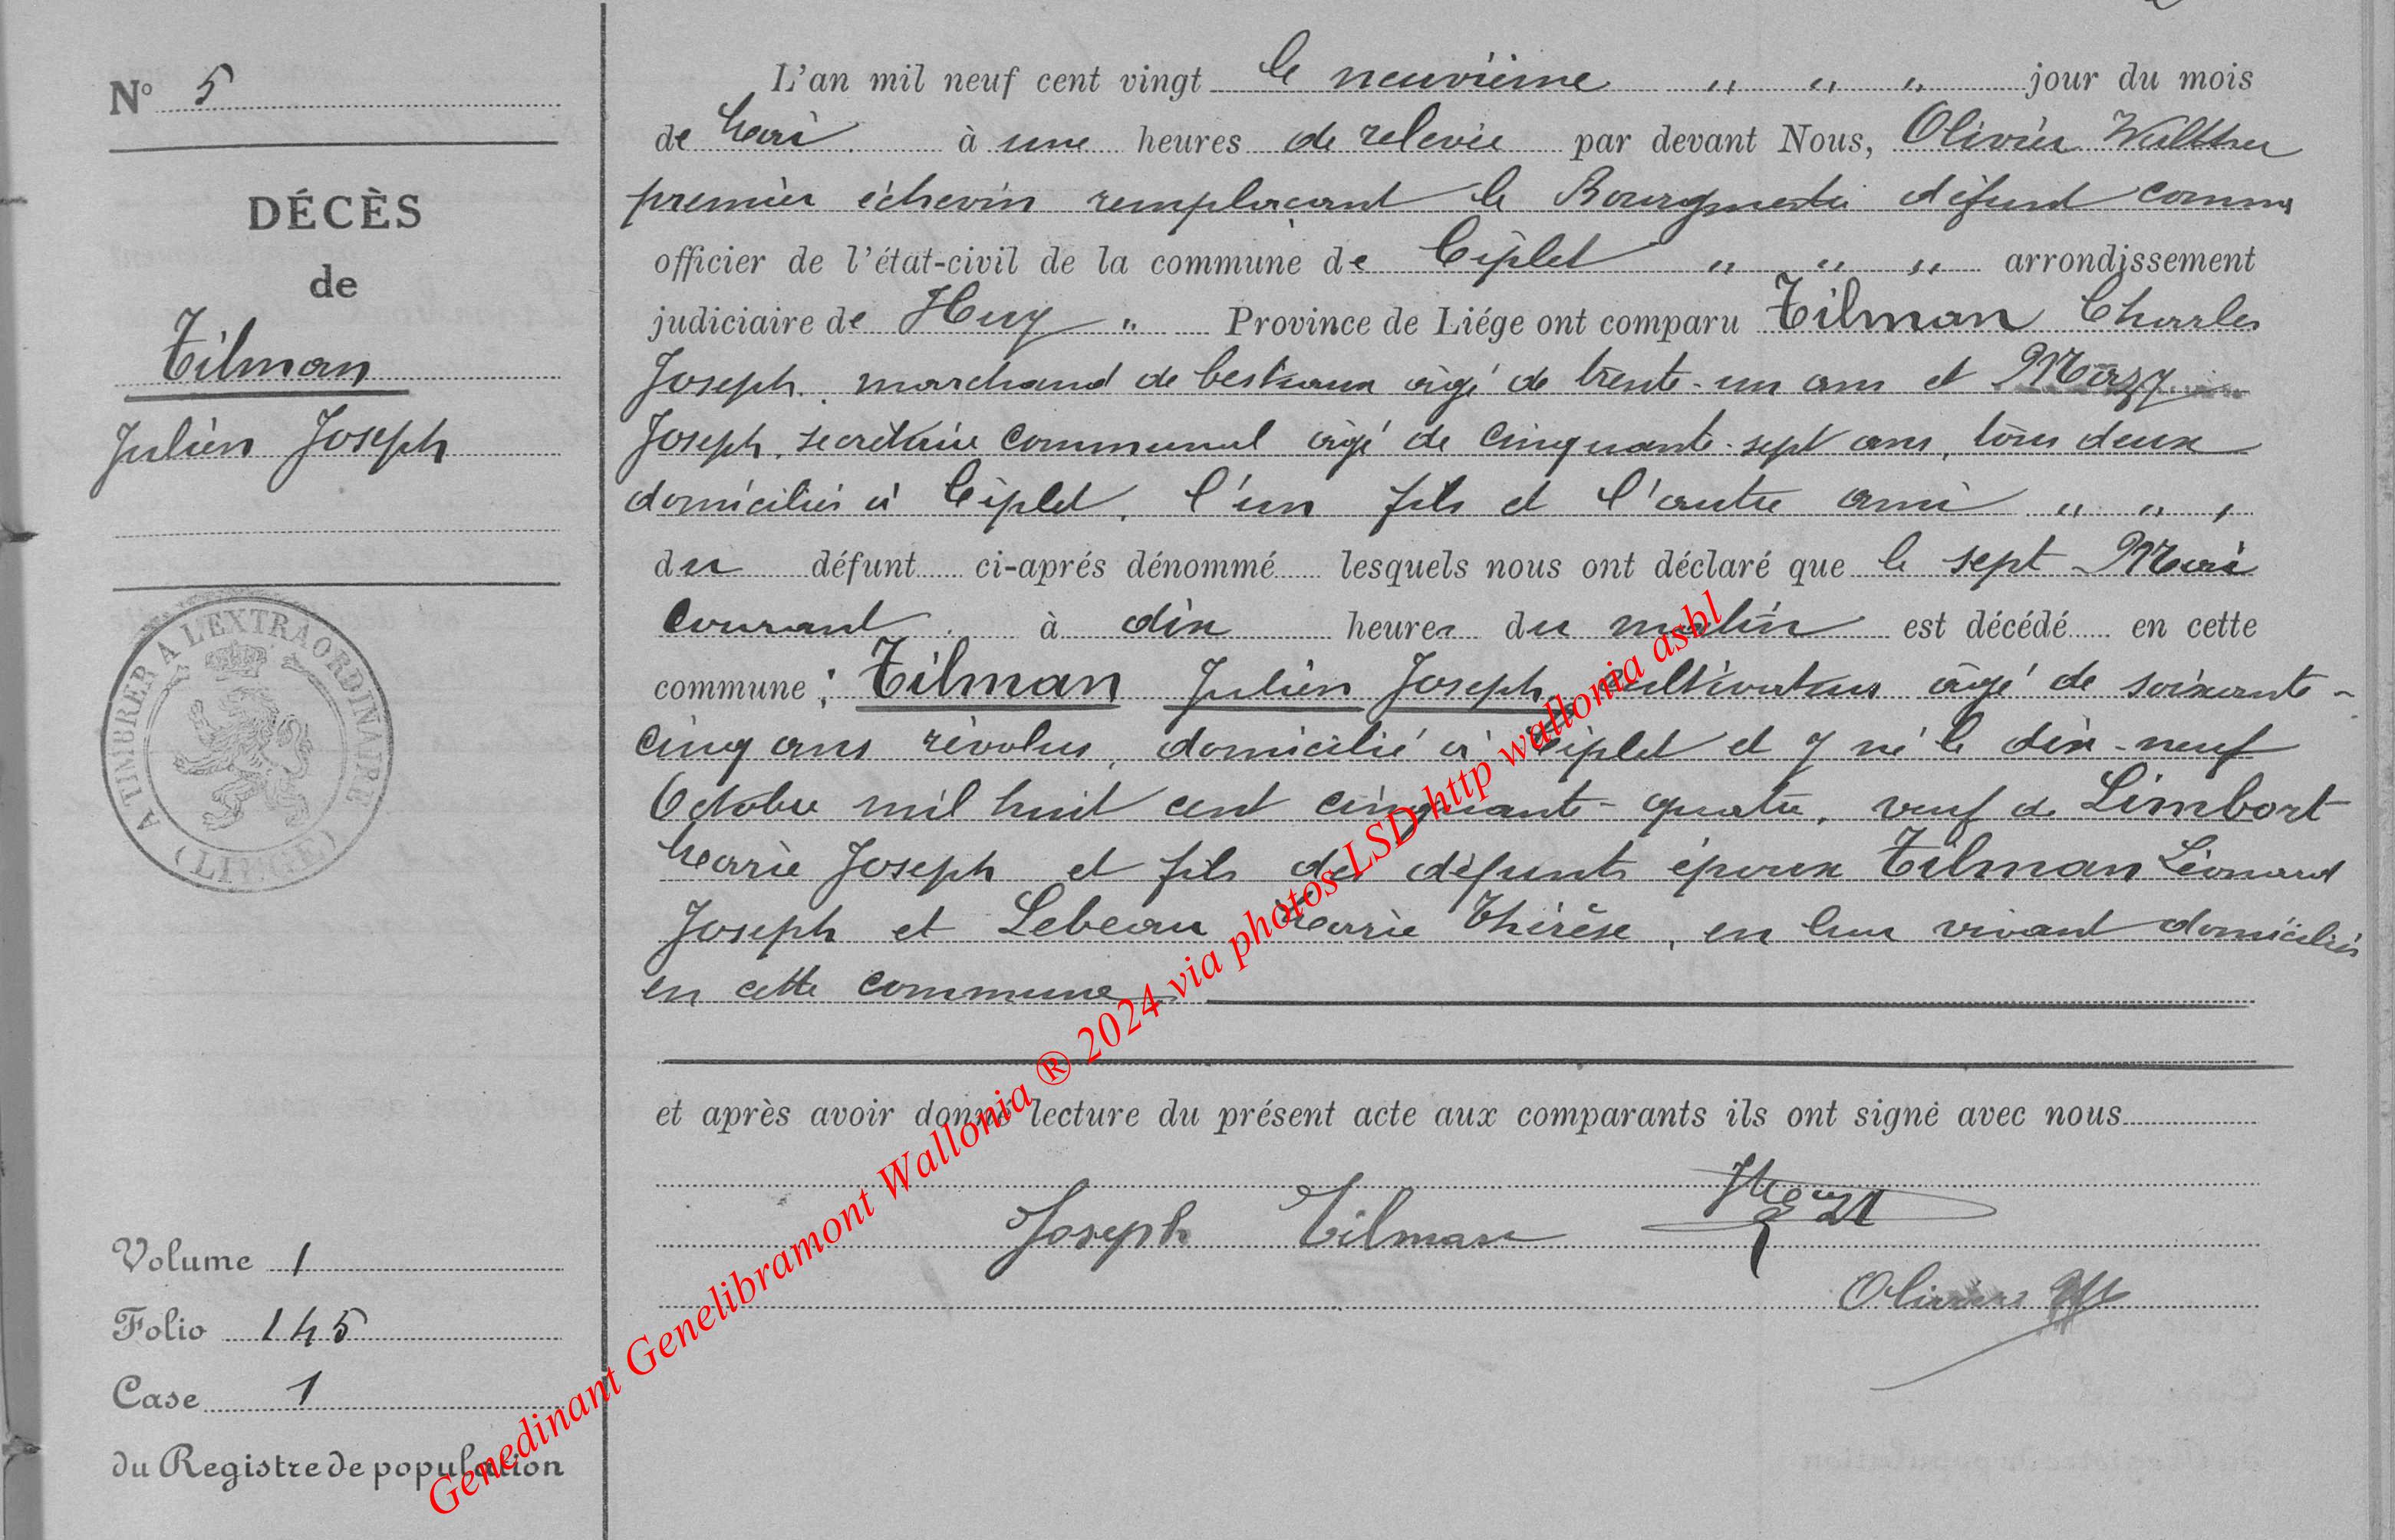 N° 5
DÉCÈS
de
Tilman
Julien Joseph
A TIMBRER A L'EXTRAORDINAIRE
(LIEGE)
Volume 1
Folio 145
Case 1
du Registre de population
L'an mil neuf cent vingt le neuvième " " " jour du mois
de Mai à une heures de relevée par devant Nous, Olivier Walther
premier échevin remplaçant le Bourgmestre défunt comme
officier de l'état-civil de la commune de Ciplet " " " arrondissement
judiciaire de Huy " Province de Liége ont comparu Tilman Charles
Joseph, marchand de bestiaux âgé de trente-un ans et Mazy
Joseph, secrétaire communal âgé de cinquante-sept ans, tous deux
domiciliés à Ciplet, l'un fils et l'autre ami " " ,
du défunt ci-aprés dénommé lesquels nous ont déclaré que le sept Mai
courant à dix heures du matin est décédé en cette
commune : Tilman Julien Joseph, cultivateur âgé de soixante-
cinq ans révolus, domicilié à Ciplet et y né le dix-neuf
Octobre mil huit cent cinquante-quatre, veuf de Limbort
Marie Joseph et fils des défunts époux Tilman Léonard
Joseph et Lebeau Marie Thérèse, en leur vivant domiciliés
en cette commune
et après avoir donné lecture du présent acte aux comparants ils ont signé avec nous
Joseph Tilman
Olivier
Genedinant Genelibramont Wallonia ® 2024 via photos LSD http wallonia asbl